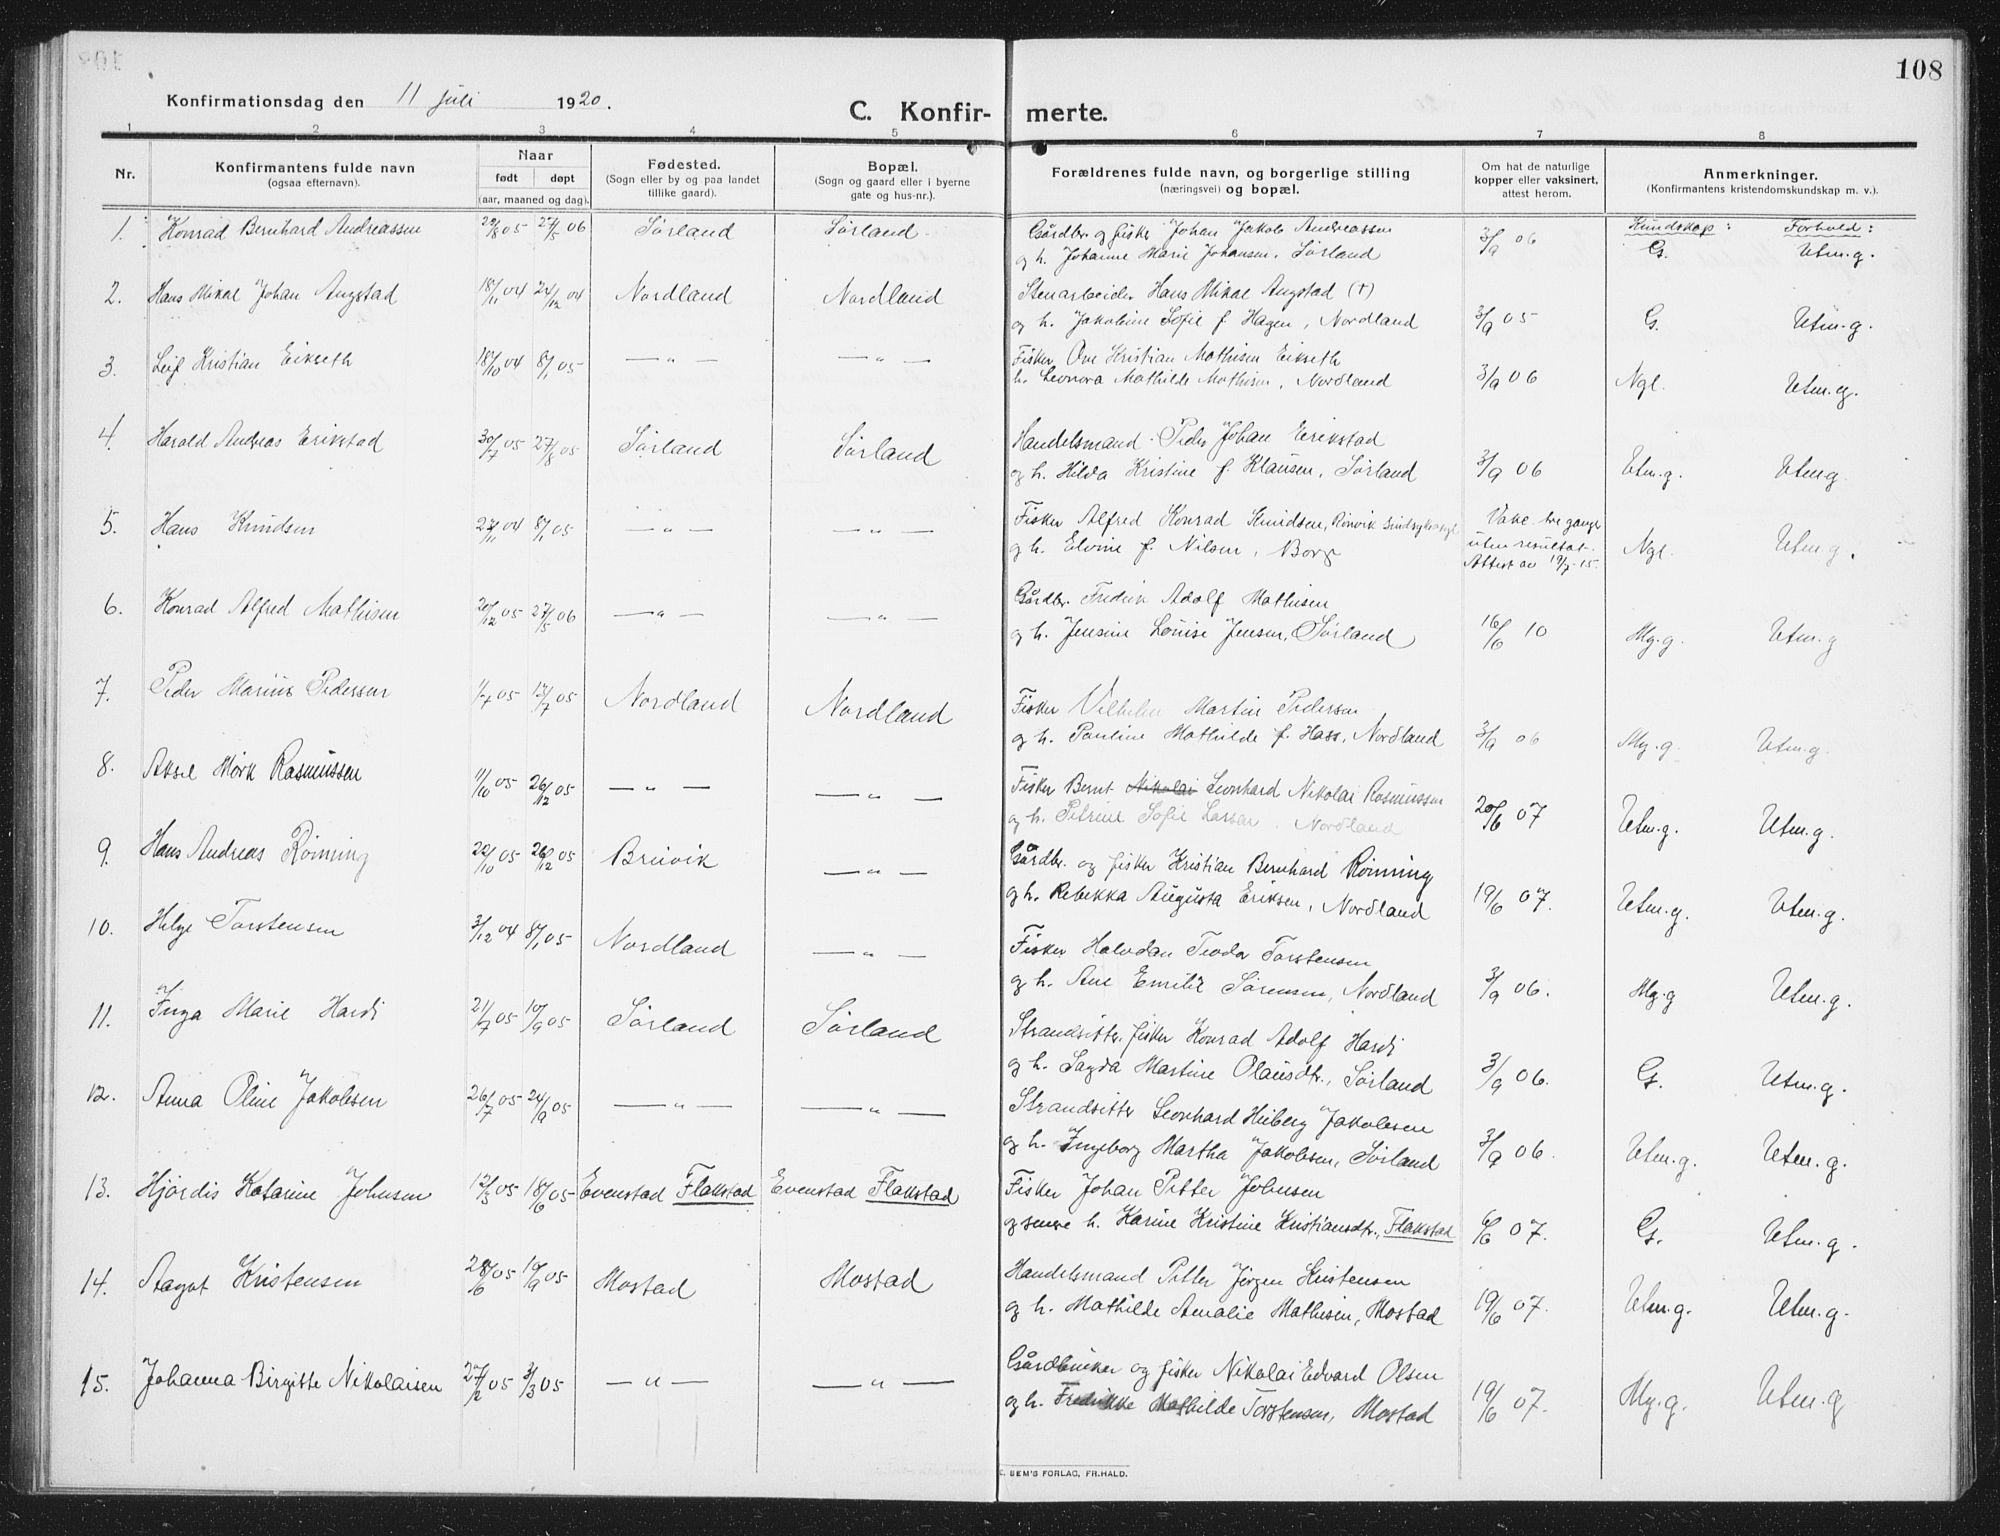 108
Konfirmationsdag den 11 juli 1920.
C. Konfirmerte.
1 2 3 4 5 6 7 8
Nr. Konfirmantens fulde navn (ogsaa efternavn). Naar født døpt (aar, maaned og dag). Fødested. (Sogn eller by og paa landet tillike gaard). Bopæl. (Sogn og gaard eller i byerne gate og hus-nr.). Forældrenes fulde navn, og borgerlige stilling (næringsvei) og bopæl. Om hat de naturlige kopper eller vaksinert, attest herom. Anmerkninger. (Konfirmantens kristendomskundskap m. v.).
Kundskap: Forhold:
1. Konrad Bernhard Andreassen 29/8 05 27/5 06 Sørland Sørland Gårdbr. og fisker Johan Jakob Andreassen
og h. Johanne Marie Johansen, Sørland 3/9 06 G. Utm.g.
2. Hans Mikal Johan Angstad 18/11 04 24/12 04 Nordland Nordland Stenarbeider Hans Mikal Angstad (†)
og h. Jakobine Sofie f. Hagen, Nordland 3/9 05 G. Utm.g.
3. Leif Kristian Eikseth 18/10 04 8/1 05 — " — — " — Fisker Ove Kristian Mathisen Eikseth
h. Leonora Mathilde Mathisen, Nordland 3/9 06 Ngl. Utm.g.
4. Harald Andreas Erikstad 30/7 05 27/8 05 Sørland Sørland Handelsmand Peder Johan Erikstad
og h. Hilda Kristine f. Klausen, Sørland 3/9 06 Utm.g. Utm.g
5. Hans Knudsen 27/11 04 8/1 05 — " — — " — Fisker Alfred Konrad Knudsen, Rønvik Sindsykeasyl Vake. tre ganger
og h. Elvine f. Nilsen, Borge uten resultat. Ngl. Utm.g.
Attest av 19/7-15.
6. Konrad Alfred Mathisen 20/12 05 27/5 06 — " — — " — Gårdbr. Fredrik Adolf Mathisen
og h. Jensine Louise Jensen, Sørland 16/6 10 Mg.g. Utm.g
7. Peder Marius Pedersen 1/7 05 13/7 05 Nordland Nordland Fisker Vilhelm Martin Pedersen
og h. Pauline Mathilde f. Hass, Nordland 3/9 06 Mg.g. Utm.g.
8. Aksel Mørk Rasmussen 11/10 05 26/12 05 — " — — " — Fisker Bernt Nikolai Leonhard Nikolai Rasmussen
og h. Petrine Sofie Larsen, Nordland 20/6 07 Utm.g. Utm.g.
9. Hans Andreas Rönning 22/10 05 26/12 05 Breivik — " — Gårdbr. og fisker Kristian Bernhard Rönning
og h. Rebekka Augusta Eriksen, Nordland 19/6 07. Utm.g. Utm.g.
10. Helge Torstensen 3/12 04 8/1 05 Nordland — " — Fisker Halvdan Teodor Torstensen
og h. Ane Emilie Sørensen, Nordland 3/9 06. Mg.g Utm.g.
11. Inga Marie Hardi 21/7 05 10/9 05 Sørland Sørland Strandsitter, fisker Konrad Adolf Hardi
og h. Sagda Martine Olausdtr., Sørland 3/9 06. G. Utm.g.
12. Anna Oline Jakobsen 26/7 05 24/9 05 — " — — " — Strandsitter Leonhard Heiberg Jakobsen
og h. Ingeborg Martha Jakobsen, Sørland 3/9 06. Utm.g. Utm.g.
13. Hjørdis Katarine Johnsen 12/3 05 18/6 05 Evenstad Flakstad Evenstad Flakstad Fisker Johan Petter Johnsen
og senere h. Karine Kristine Kristiansdtr., Flakstad 6/6 07. G. Utm.g.
14. Aagot Kristensen 28/6 05 19/9 05 Mostad Mostad Handelsmand Petter Jørgen Kristensen
og h. Mathilde Amalie Mathisen, Mostad 19/6 07. Utm.g. Utm.g.
15. Johanna Birgitte Nikolaisen 27/2 05 31/3 05 — " — — " — Gårdbruker og fisker Nikolai Edvard Olsen
og h. Fredrikke Mathilde Torstensen, Mostad 19/6 07. Mg.g. Utm.g
C. SEM'S FORLAG, FR.HALD.